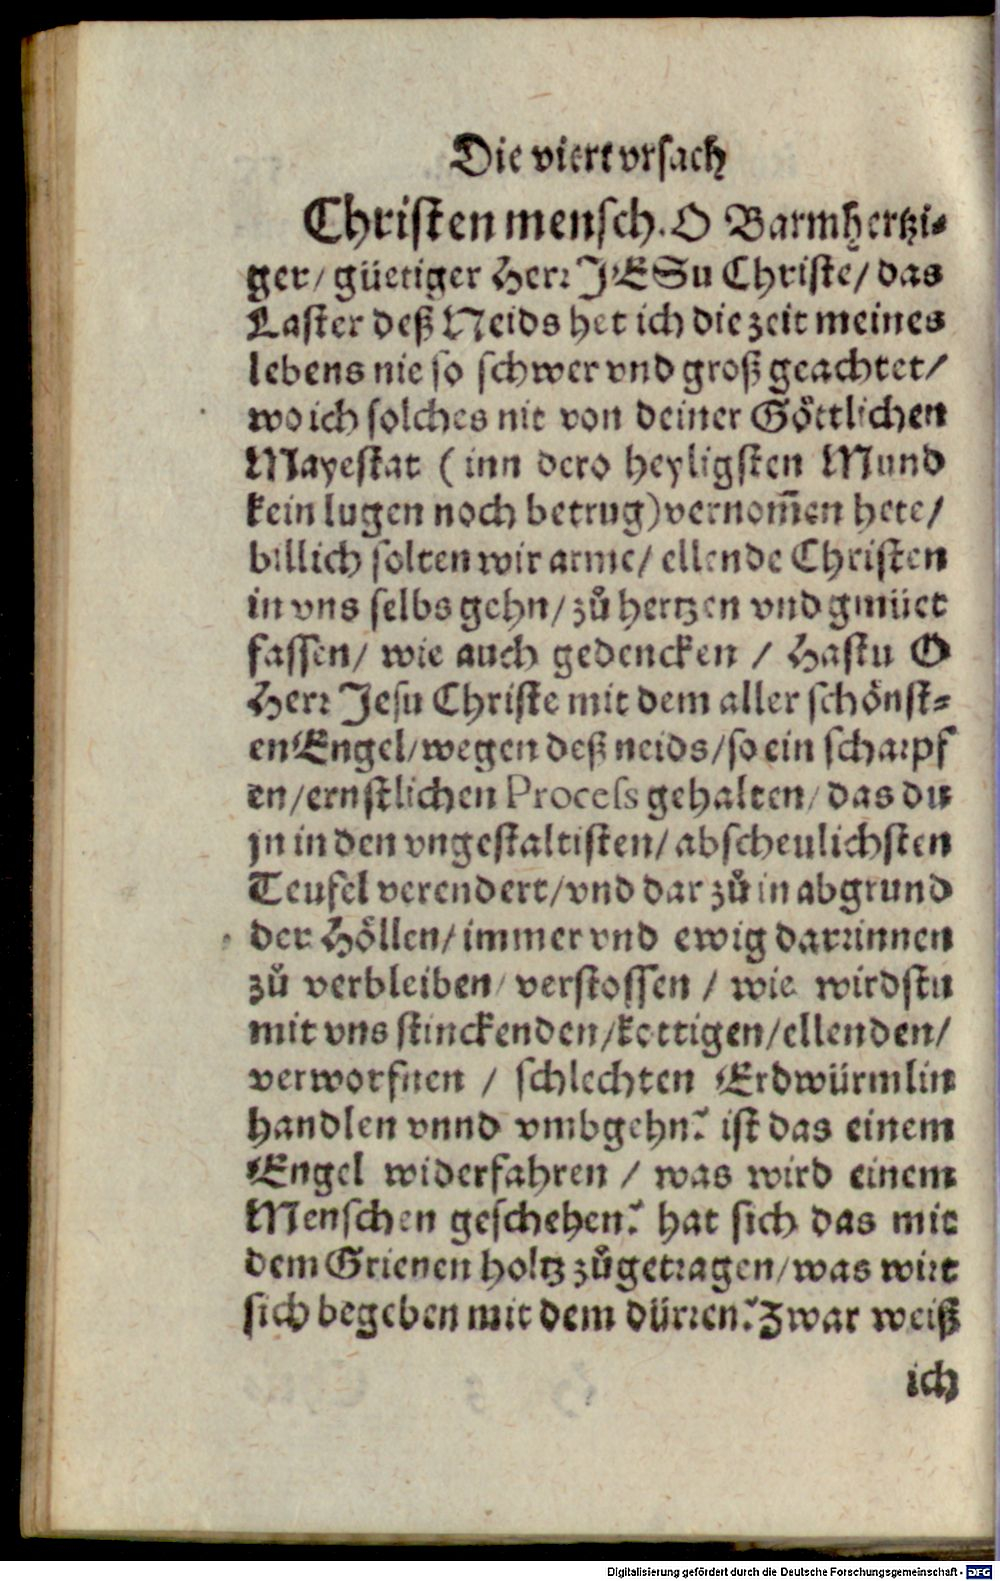 Die viert vrsach
Christen mensch. O Barmhertzi-
ger/ güetiger Herr JESu Christe/ das
Laster deß Neids het ich die zeit meines
lebens nie so schwer vnd groß geachtet/
wo ich solches nit von deiner Göttlichen
Mayestat ( inn dero heyligsten Mund
kein lugen noch betrug) vernom̃en hete/
billich solten wir arme/ ellende Christen
in vns selbs gehn/ zů hertzen vnd gmüet
fassen/ wie auch gedencken / Hastu O
Herr Jesu Christe mit dem aller schönst-
en Engel/ wegen deß neids/ so ein scharpf
en/ ernstlichen Process gehalten/ das du
jn in den vngestaltisten/ abscheulichsten
Teufel verendert/ vnd dar zů in abgrund
der Höllen/ immer vnd ewig darrinnen
zů verbleiben/ verstossen / wie wirdstu
mit vns stinckenden/ kottigen/ ellenden/
verworfnen / schlechten Erdwürmlin
handlen vnnd vmbgehn? ist das einem
Engel widerfahren / was wird einem
Menschen geschehen? hat sich das mit
dem Grienen holtz zůgetragen/ was wirt
sich begeben mit dem dürren? Zwar weiß
ich
Digitalisierung gefördert durch die Deutsche Forschungsgemeinschaft - DFG